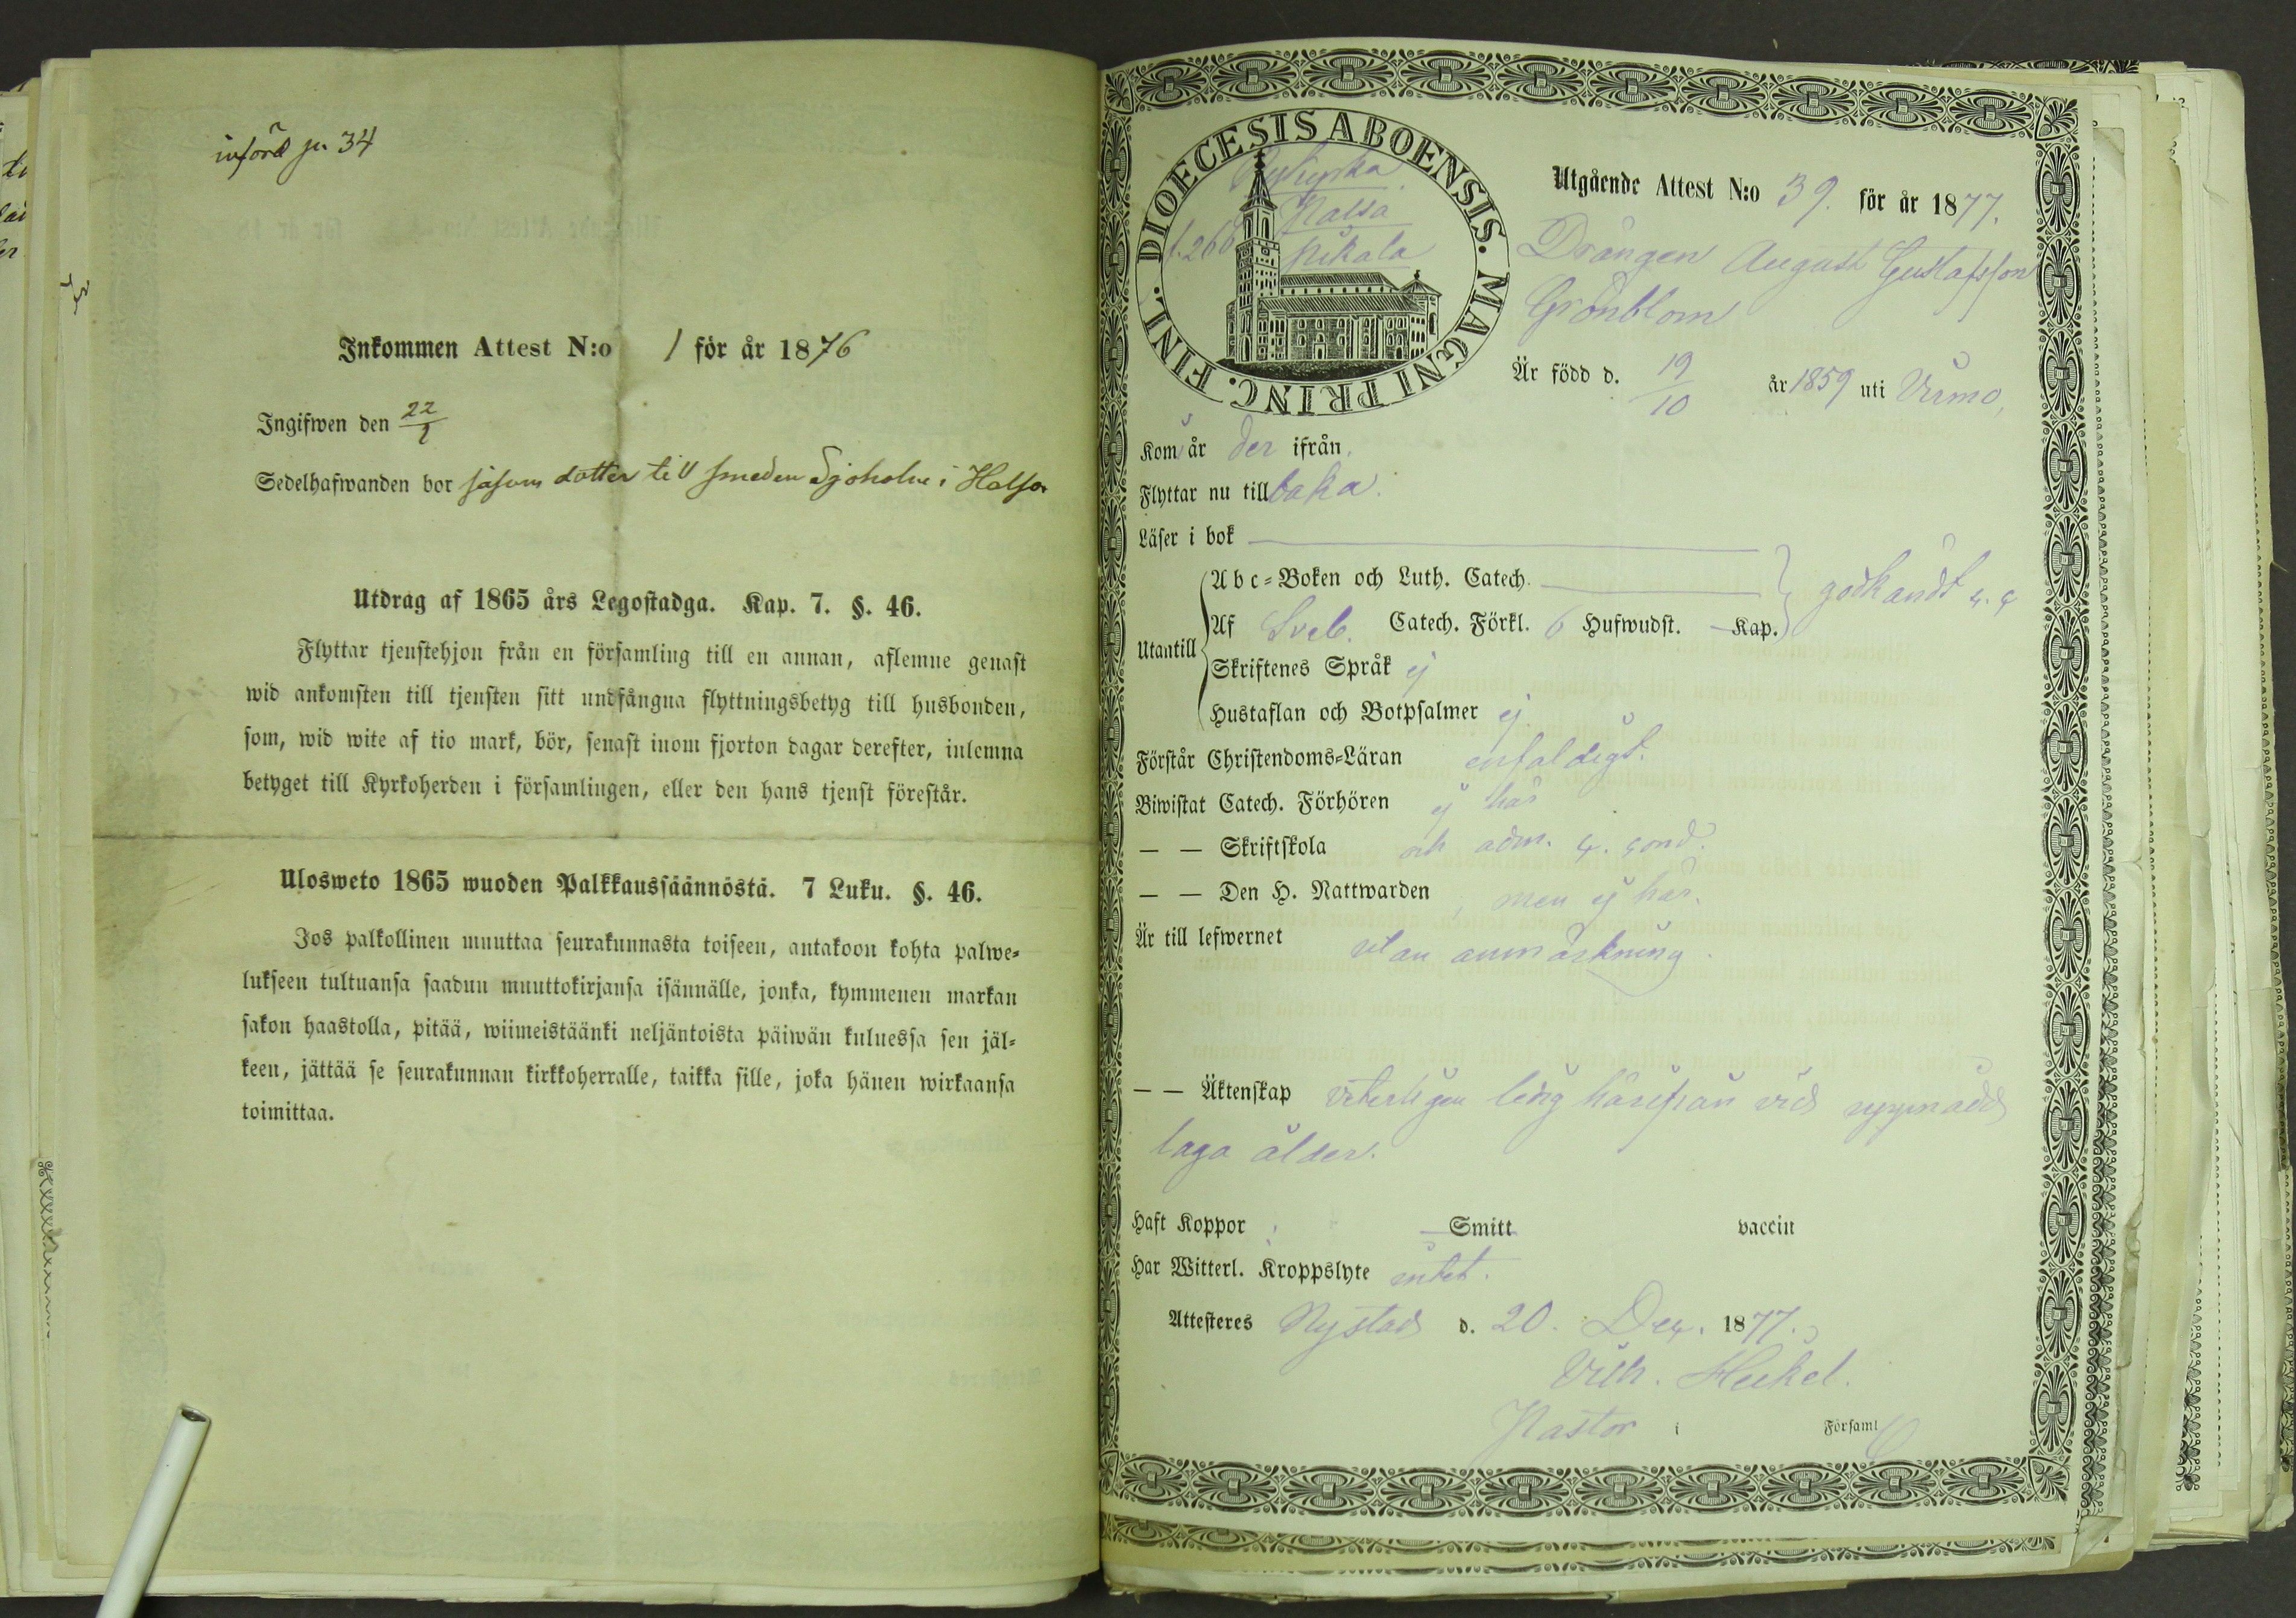 införd p. 34
Inkommen Attest N:o 1 för år 1876
Ingifwen den 22/1
Sedelhafwanden bor såsom dotter till smeden Sjöholm i Halso
Utdrag af 1865 års Legostadga. Kap. 7. §. 46.
Flyttar tjenstehjon från en församling till en annan, aflemne genast
wid ankomsten till tjensten sitt undfångna flyttningsbetyg till husbonden,
som, wid wite af tio mark, bör, senast inom fjorton dagar derefter, inlemna
betyget till Kyrkoherden i församlingen, eller den hans tjenst förestår.
Ulosweto 1865 wuoden Palkkaussäännöstä. 7 Luku. §. 46.
Jos palkollinen muuttaa seurakunnasta toiseen, antakoon kohta palwe-
lukseen tultuansa saadun muuttokirjansa isännälle, jonka, kymmenen markan
sakon haastolla, pitää, wiimeistäänki neljäntoista päiwän kuluessa sen jäl-
keen, jättää se seurakunnan kirkkoherralle, taikka sille, joka hänen wirkaansa
toimittaa.
DIOECESIS ABOENSIS. MAGNI PRINC. FINL.
f. 266
Utgående Attest N:o 39. för år 1877.
Drängen August Gustafsson
Grönblom
Är född d. 19/10 år 1859 uti Virmo,
Kom år der ifrån,
Flyttar nu till baka.
Läser i bok
Abc-Boken och Luth. Catech.
godkändt
Utantill
Af Sveb. Catech. Förkl. 6 Hufwudst. Kap.
Skriftenes Språk ej
Hustaflan och Botpsalmer ej
Förstår Christendoms-Läran enfaldigt.
Biwistat Catech. Förhören ej här
— — Skriftskola och adm.
— — Den H. Nattwarden, men ej här.
Är till lefwernet utan anmärkning.
— — Äktenskap veterligen ledig härifrån vid uppnådd
laga ålder.
Haft Koppor Smitt vaccin
Har Witterl. Kroppslyte intet.
Attesteres Nystad d. 20. Dec. 1877.
Vilh. Heikel.
Pastor i Församl